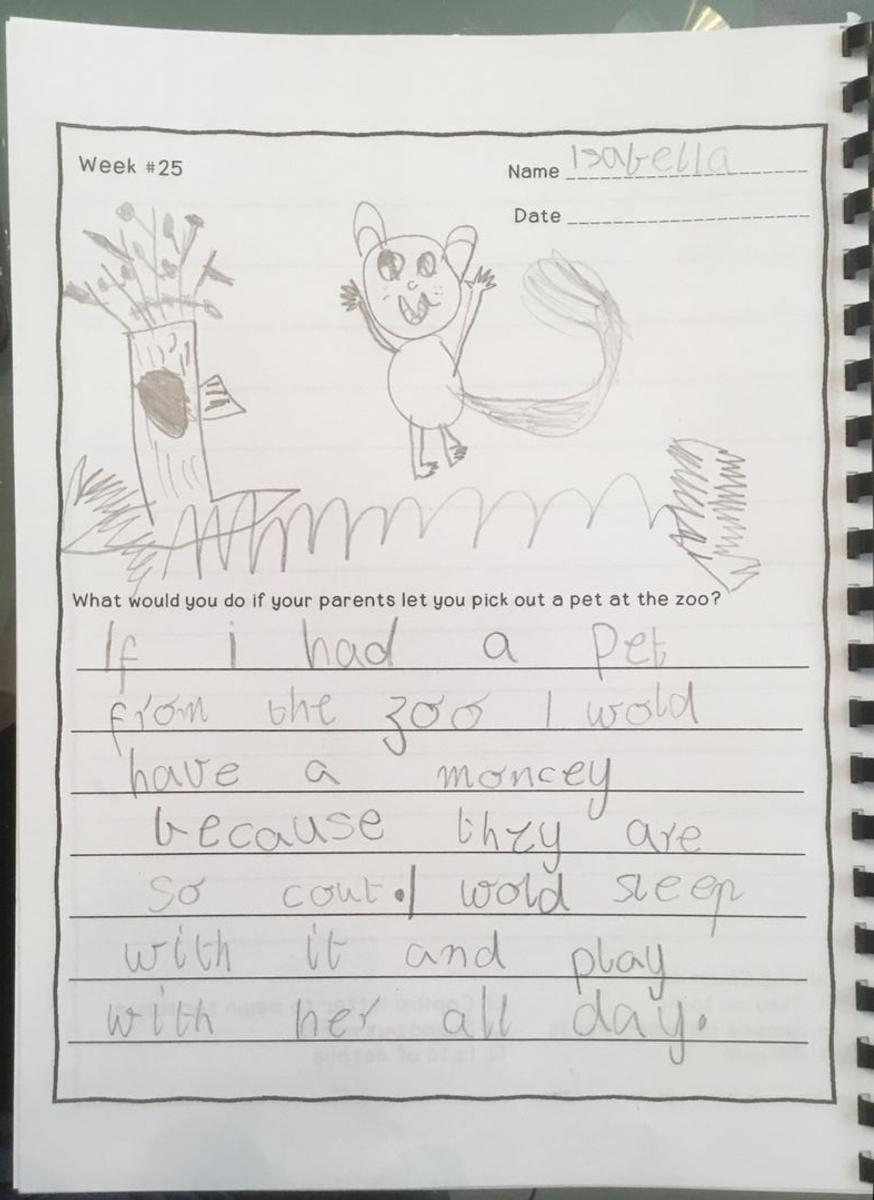 Week #25
Name Isabella
Date
What would you do if your parents let you pick out a pet at the zoo?
If i had a Pet
from the zoo I wold
have a moncey
because thzy are
so cout. I wold sleep
with it and play
with her all day.